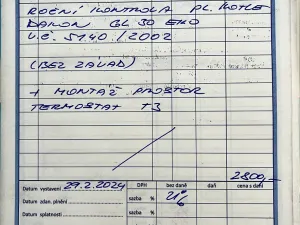 ROČNÍ KONTROLA PL. KOTLE
DAKON GL 30 EKO
V.Č. 5140/2002
(BEZ ZÁVAD)
+ MONTÁŽ PROSTOR
TERMOSTAT T3
2800,-
Datum vystavení 29.2.2024 DPH bez daně daň cena s daní
Datum zdan. plnění sazba % 21%
Datum splatnosti sazba %